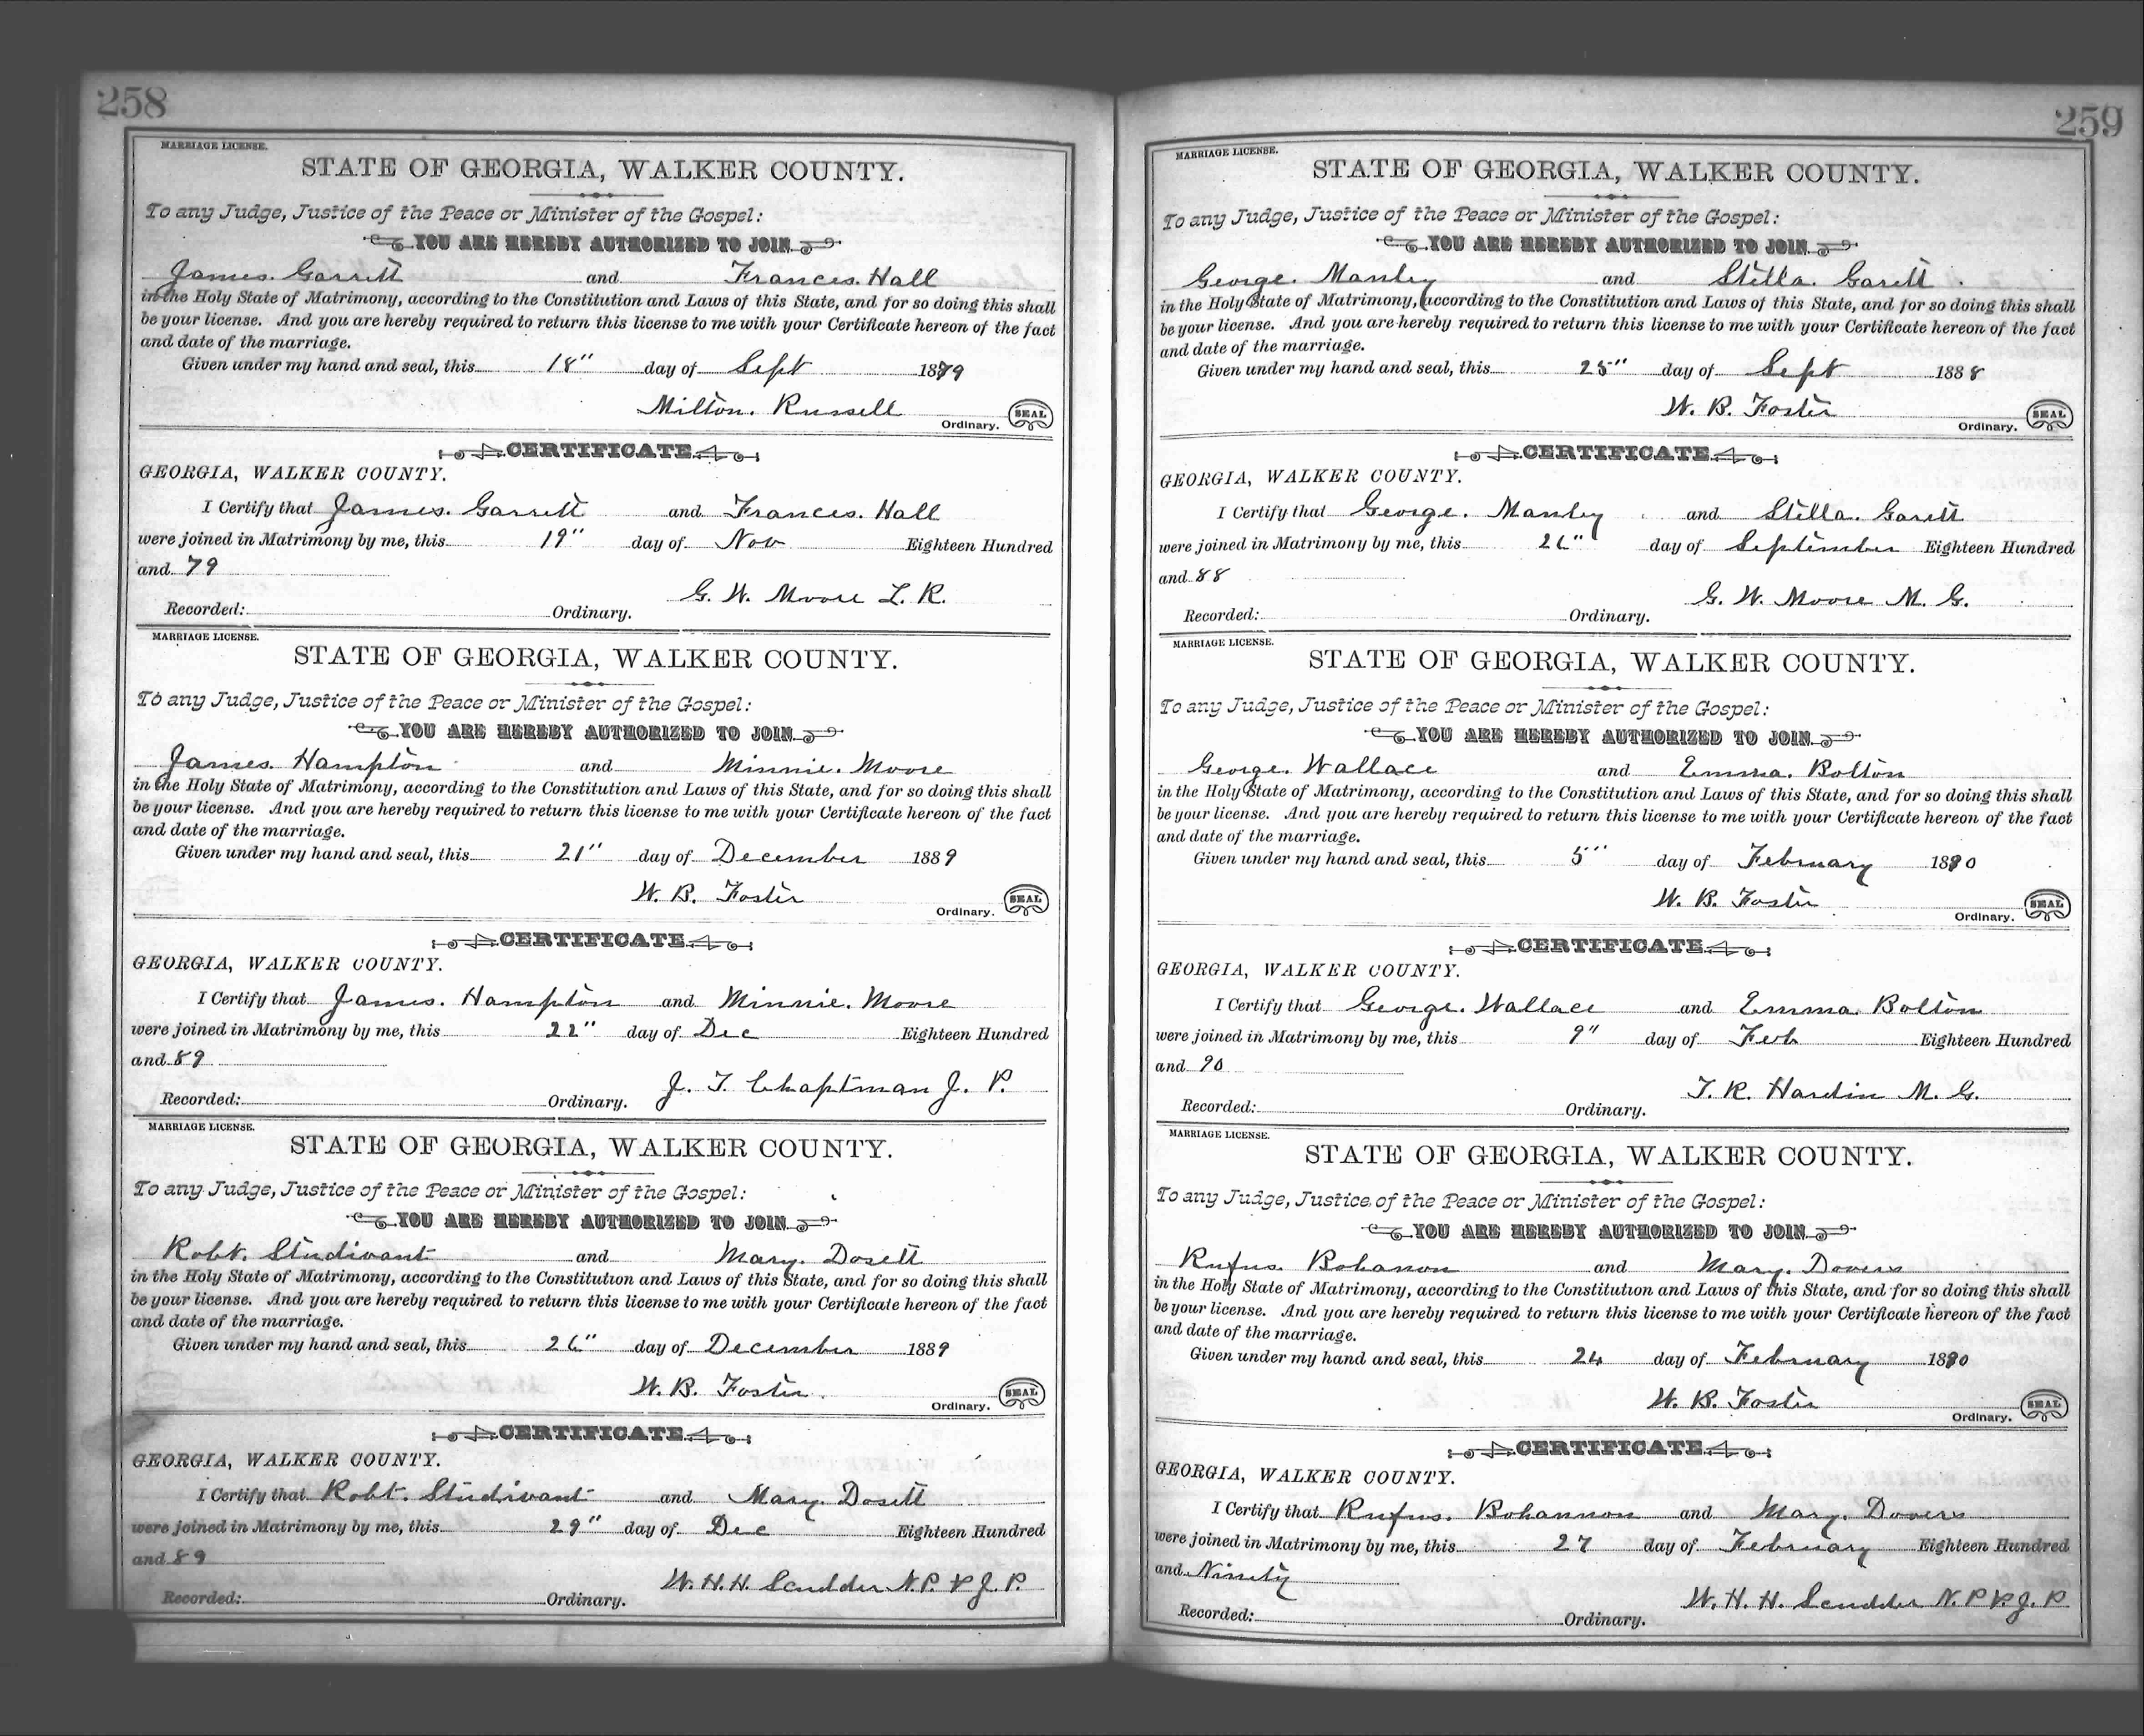 258
MARRIAGE LICENSE.
STATE OF GEORGIA, WALKER COUNTY.
To any Judge, Justice of the Peace or Minister of the Gospel:
YOU ARE HEREBY AUTHORIZED TO JOIN
James. Garrett and Frances. Hall
in the Holy State of Matrimony, according to the Constitution and Laws of this State, and for so doing this shall
be your license. And you are hereby required to return this license to me with your Certificate hereon of the fact
and date of the marriage.
Given under my hand and seal, this 18" day of Sept 1879
Milton. Russell
Ordinary. SEAL
CERTIFICATE
GEORGIA, WALKER COUNTY.
I Certify that James. Garrett and Frances. Hall
were joined in Matrimony by me, this 19" day of Nov Eighteen Hundred
and 79
G. W. Moore L. R.
Recorded: Ordinary.
MARRIAGE LICENSE.
STATE OF GEORGIA, WALKER COUNTY.
To any Judge, Justice of the Peace or Minister of the Gospel:
YOU ARE HEREBY AUTHORIZED TO JOIN
James. Hampton and Minnie. Moore
in the Holy State of Matrimony, according to the Constitution and Laws of this State, and for so doing this shall
be your license. And you are hereby required to return this license to me with your Certificate hereon of the fact
and date of the marriage.
Given under my hand and seal, this 21" day of December 1889
W. B. Foster
Ordinary. SEAL
CERTIFICATE
GEORGIA, WALKER COUNTY.
I Certify that James. Hampton and Minnie. Moore
were joined in Matrimony by me, this 22" day of Dec Eighteen Hundred
and 89
J. T. Chaptman J. P.
Recorded: Ordinary.
MARRIAGE LICENSE.
STATE OF GEORGIA, WALKER COUNTY.
To any Judge, Justice of the Peace or Minister of the Gospel:
YOU ARE HEREBY AUTHORIZED TO JOIN
Robt. Studivant and Mary. Dosett
in the Holy State of Matrimony, according to the Constitution and Laws of this State, and for so doing this shall
be your license. And you are hereby required to return this license to me with your Certificate hereon of the fact
and date of the marriage.
Given under my hand and seal, this 26" day of December 1889
W. B. Foster
Ordinary. SEAL
CERTIFICATE
GEORGIA, WALKER COUNTY.
I Certify that Robt. Studivant and Mary. Dosett
were joined in Matrimony by me, this 29" day of Dec Eighteen Hundred
and 89
W. H. H. Scudder N. P. & J. P.
Recorded: Ordinary.
259
MARRIAGE LICENSE.
STATE OF GEORGIA, WALKER COUNTY.
To any Judge, Justice of the Peace or Minister of the Gospel:
YOU ARE HEREBY AUTHORIZED TO JOIN
George. Manley and Stella. Garett.
in the Holy State of Matrimony, according to the Constitution and Laws of this State, and for so doing this shall
be your license. And you are hereby required to return this license to me with your Certificate hereon of the fact
and date of the marriage.
Given under my hand and seal, this 25" day of Sept 1888
W. B. Foster
Ordinary. SEAL
CERTIFICATE
GEORGIA, WALKER COUNTY.
I Certify that George. Manley and Stella. Garett
were joined in Matrimony by me, this 26" day of September Eighteen Hundred
and 88
G. W. Moore M. G.
Recorded: Ordinary.
MARRIAGE LICENSE.
STATE OF GEORGIA, WALKER COUNTY.
To any Judge, Justice of the Peace or Minister of the Gospel:
YOU ARE HEREBY AUTHORIZED TO JOIN
George. Wallace and Emma. Bolton
in the Holy State of Matrimony, according to the Constitution and Laws of this State, and for so doing this shall
be your license. And you are hereby required to return this license to me with your Certificate hereon of the fact
and date of the marriage.
Given under my hand and seal, this 5" day of February 1890
W. B. Foster
Ordinary. SEAL
CERTIFICATE
GEORGIA, WALKER COUNTY.
I Certify that George. Wallace and Emma. Bolton
were joined in Matrimony by me, this 9" day of Feb Eighteen Hundred
and 90
T. R. Hardin M. G.
Recorded: Ordinary.
MARRIAGE LICENSE.
STATE OF GEORGIA, WALKER COUNTY.
To any Judge, Justice of the Peace or Minister of the Gospel:
YOU ARE HEREBY AUTHORIZED TO JOIN
Rufus. Bohanon and Mary. Dovers
in the Holy State of Matrimony, according to the Constitution and Laws of this State, and for so doing this shall
be your license. And you are hereby required to return this license to me with your Certificate hereon of the fact
and date of the marriage.
Given under my hand and seal, this 24 day of February 1890
W. B. Foster
Ordinary. SEAL
CERTIFICATE
GEORGIA, WALKER COUNTY.
I Certify that Rufus. Bohannon and Mary. Dovers
were joined in Matrimony by me, this 27 day of February Eighteen Hundred
and Ninety
W. H. H. Scudder N. P. & J. P
Recorded: Ordinary.